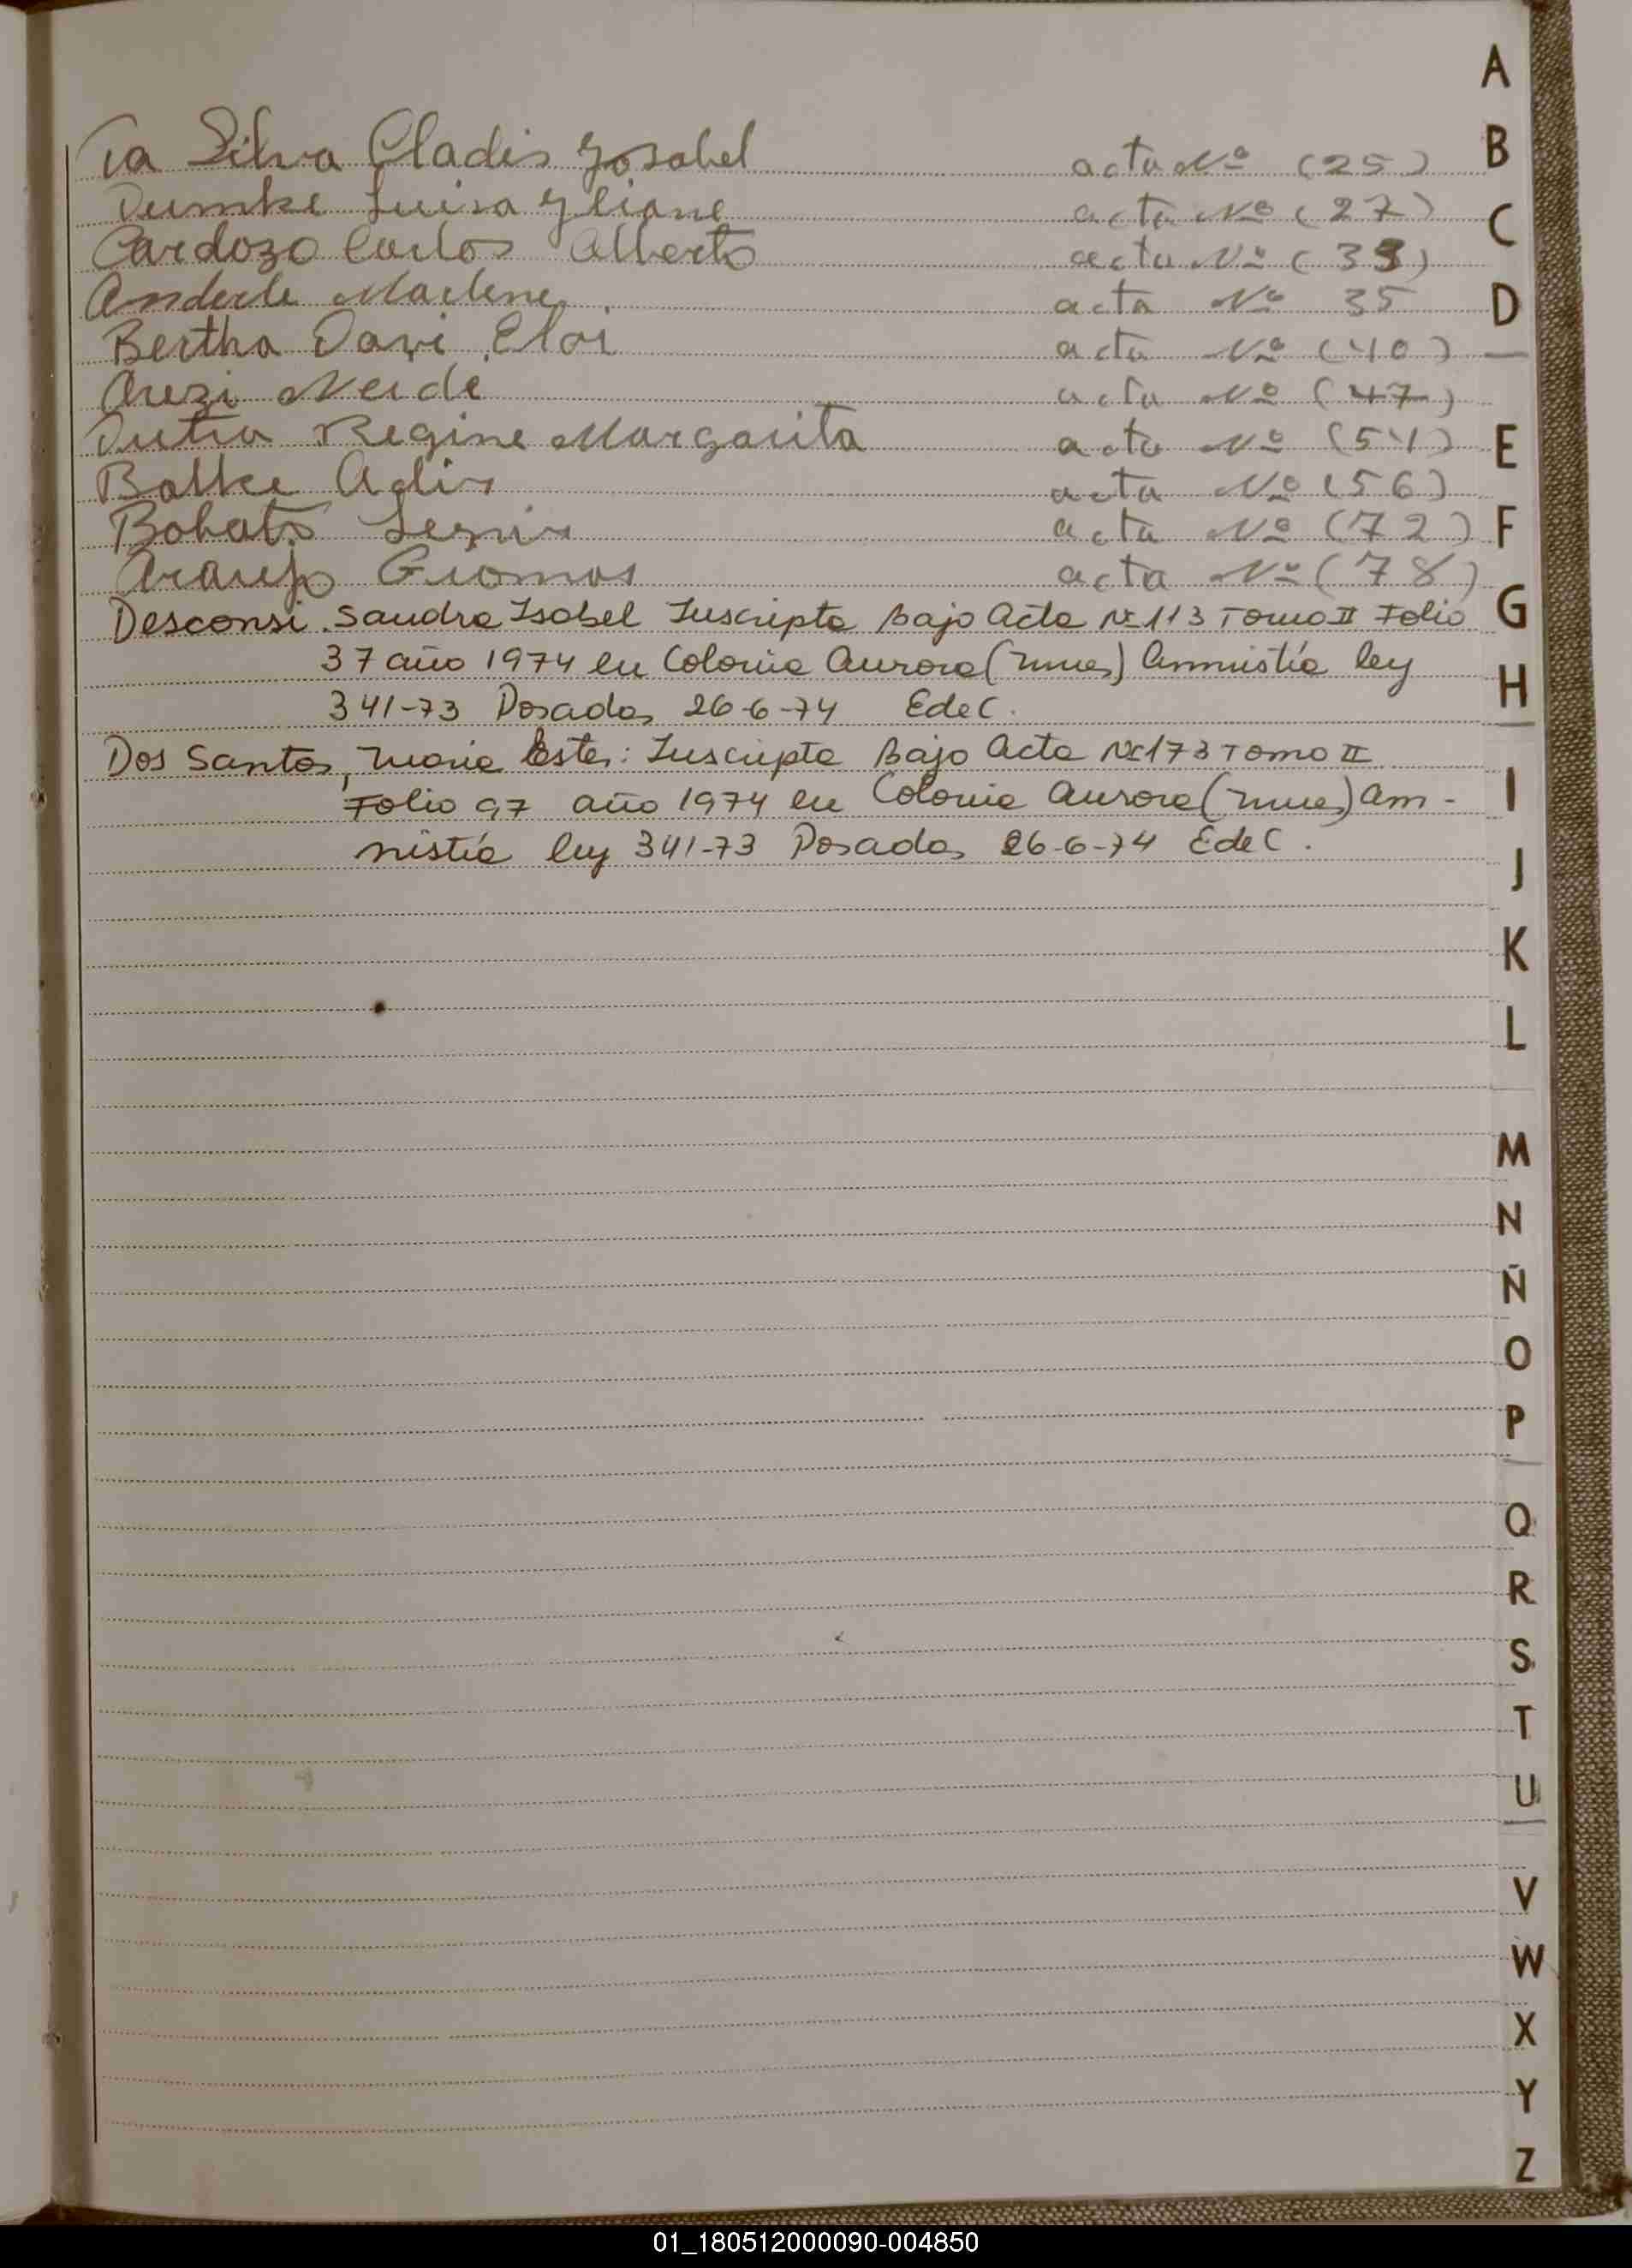 Da Silva Cladis Ysabel acta Nº (25)
Dumke Luisa Yliane acta Nº (27)
Cardozo Carlos Alberto acta Nº (33)
Anderle Marlene acta Nº 35
Bertha Davi Eloi acta Nº (40)
Arezi Neide acta Nº (47)
Dutra Regine Margarita acta Nº (51)
Batke Adir acta Nº (56)
Bobato acta Nº (72)
Araujo acta Nº (78)
Desconsi. Sandra Isabel Inscripta Bajo Acta Nº 113 Tomo II Folio
37 año 1974 en Colonia Aurora (Mnes) Amnistía ley
341-73 Posadas 26-6-74 EdeC.
Dos Santos, Maria Ester: Inscripta Bajo Acta Nº 173 Tomo II
Folio 97 año 1974 en Colonia Aurora (Mnes) Am-
nistía ley 341-73 Posadas 26-6-74 EdeC.
A
B
C
D
E
F
G
H
I
J
K
L
M
N
Ñ
O
P
Q
R
S
T
U
V
W
X
Y
Z
01_180512000090-004850